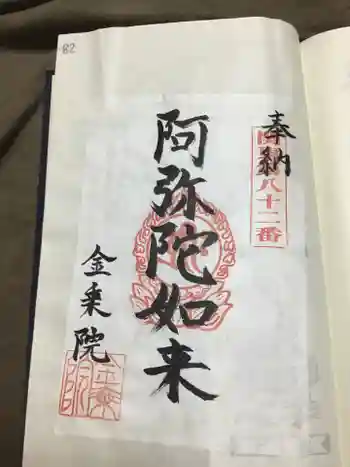 82
奉納
八十二番
阿弥陀如来
金乗院
金乗院